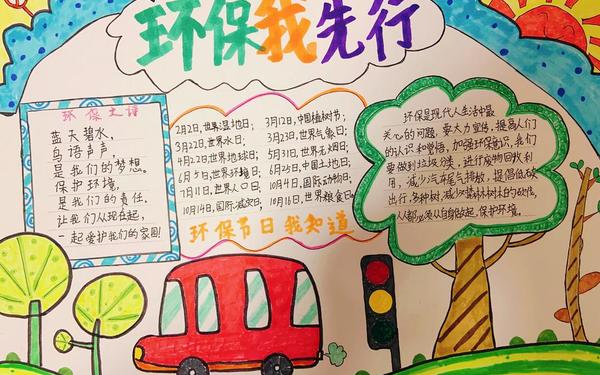 环保我先行
环保之诗
蓝天碧水，
鸟语声声，
是我们的梦想。
保护环境，
是我们的责任。
让我们从现在起，
一起爱护我们的家园
2月2日，世界湿地日； 3月12日，中国植树节；
3月22日，世界水日； 3月23日，世界气象日；
4月22日，世界地球日； 5月31日，世界无烟日；
6月5日，世界环境日； 6月25日，中国土地日；
7月11日，世界人口日； 10月4日，国际动物日；
10月14日，国际减灾日； 10月16日，世界粮食日。
环保节日我知道
环保是现代人生活中最
关心的问题，要大力宣传，提高人们
的认识和觉悟，加强环保意识，我们
要做到垃圾分类，进行废物回收利
用，减少汽车尾气排放，提倡低碳
出行，多种树，减少森林树木的砍伐，
人人都必须从自身做起，保护环境。